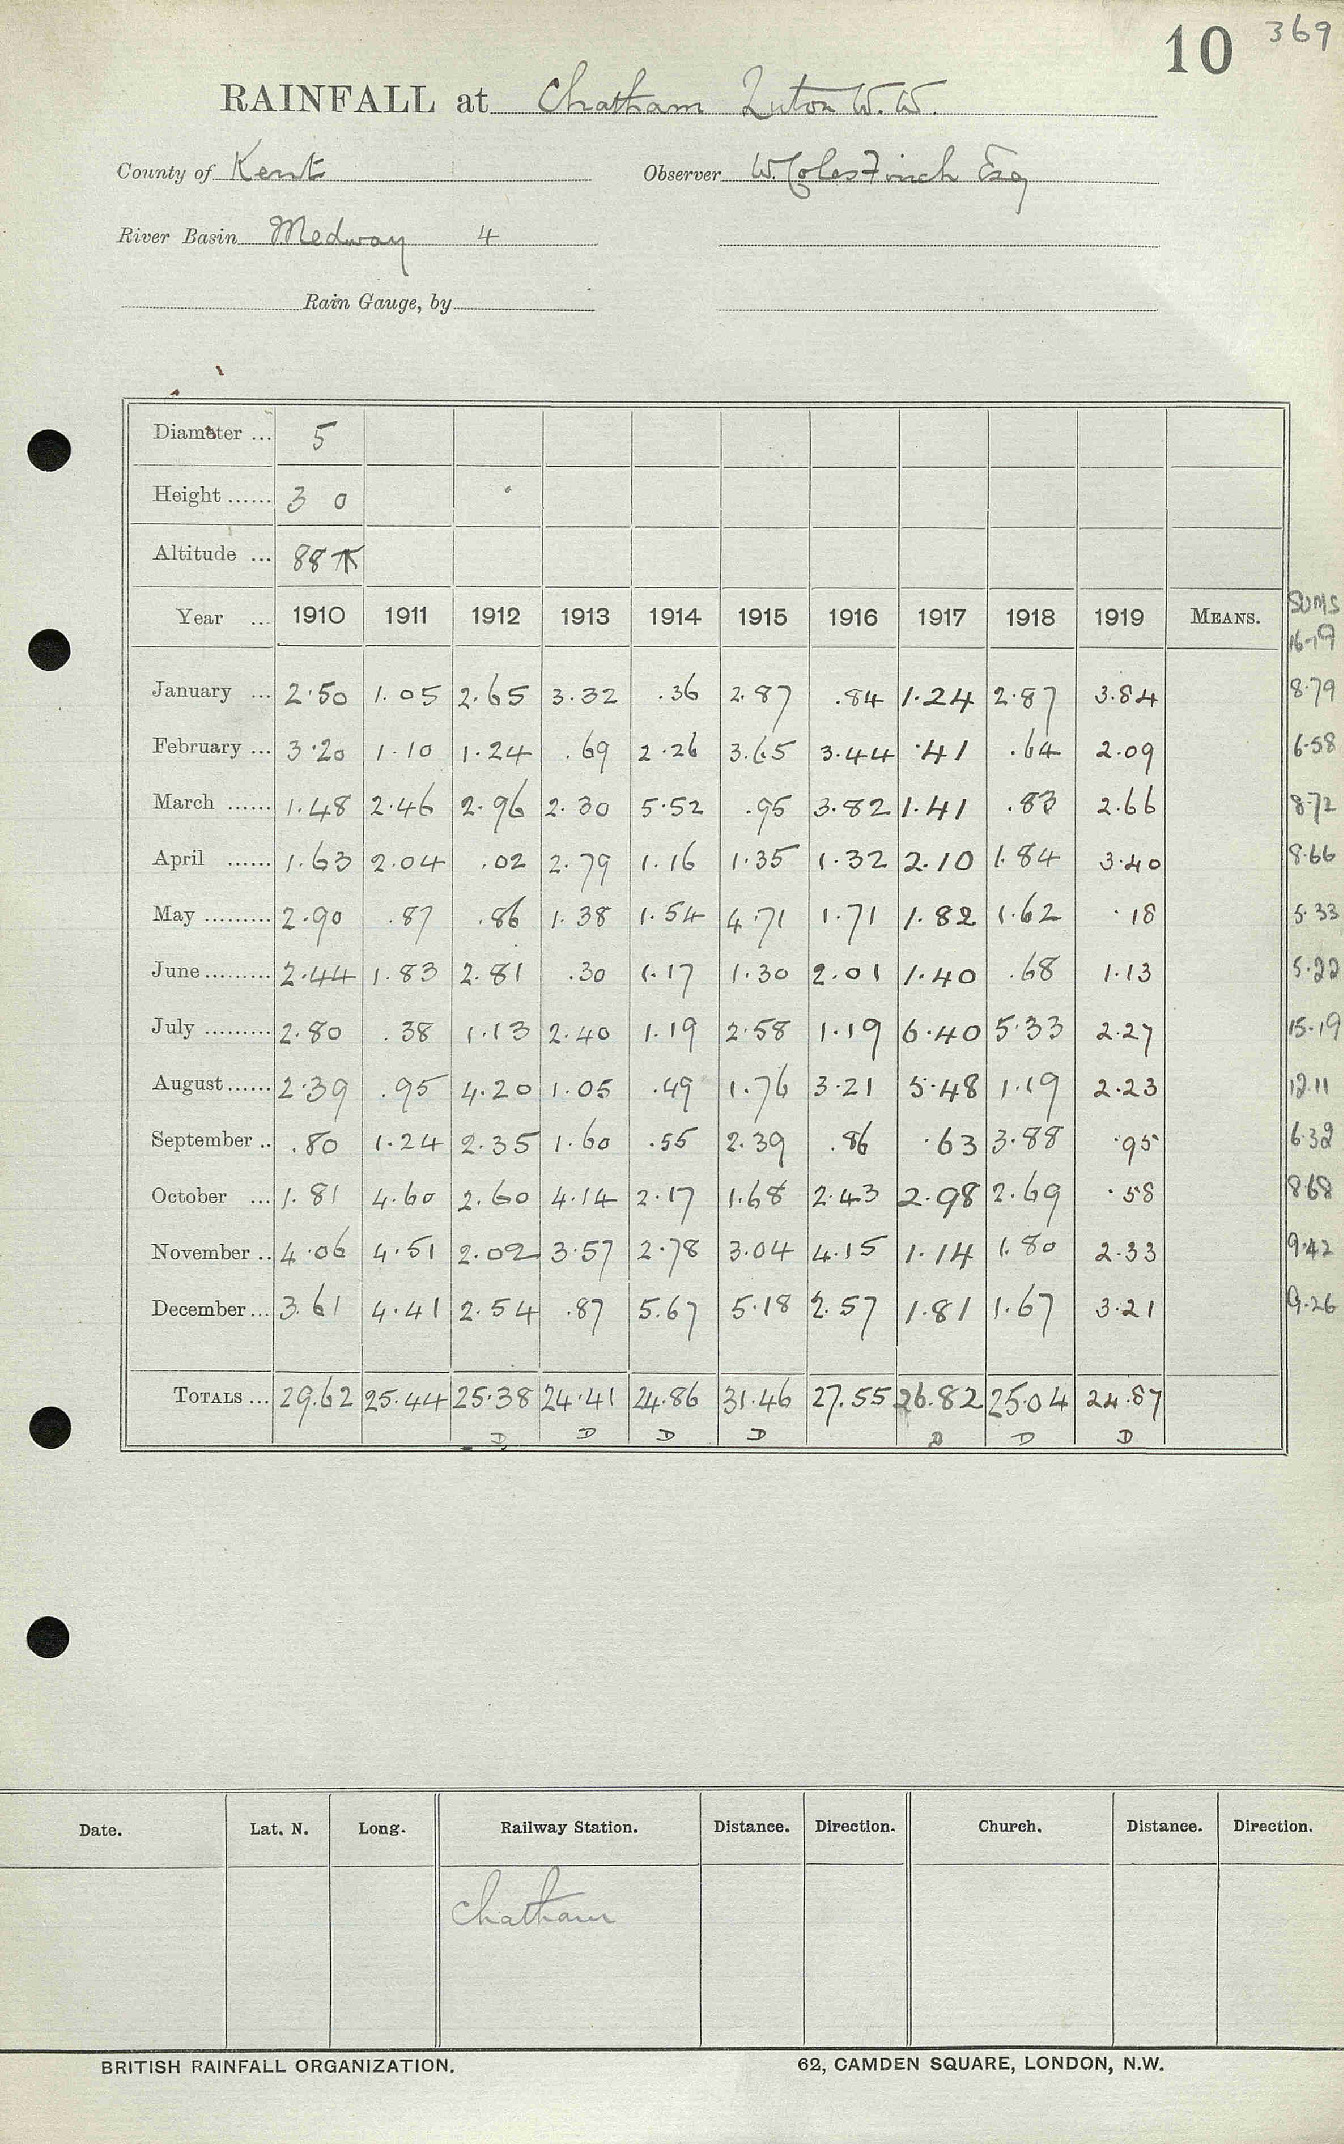 10 369
RAINFALL at Chatham Luton W.W.
County of Kent Observer W. Coles Finch Esq
River Basin Medway 4
Rain Gauge, by
Diameter ... 5
Height ...... 3 0
Altitude ... 88
Year ... 1910 1911 1912 1913 1914 1915 1916 1917 1918 1919 MEANS. SUMS 16-19
January ... 2.50 1.05 2.65 3.32 .36 2.87 .84 1.24 2.87 3.84 8.79
February ... 3.20 1.10 1.24 .69 2.26 3.65 3.44 .41 .64 2.09 6.58
March ...... 1.48 2.46 2.96 2.30 5.52 .95 3.82 1.41 .83 2.66 8.72
April ...... 1.63 2.04 .02 2.79 1.16 1.35 1.32 2.10 1.84 3.40 8.66
May ......... 2.90 .87 .86 1.38 1.54 4.71 1.71 1.82 1.62 .18 5.33
June ......... 2.44 1.83 2.81 .30 1.17 1.30 2.01 1.40 .68 1.13 5.22
July ......... 2.80 .38 1.13 2.40 1.19 2.58 1.19 6.40 5.33 2.27 15.19
August ...... 2.39 .95 4.20 1.05 .49 1.76 3.21 5.48 1.19 2.23 12.11
September .. .80 1.24 2.35 1.60 .55 2.39 .86 .63 3.88 .95 6.32
October ... 1.81 4.60 2.60 4.14 2.17 1.68 2.43 2.98 2.69 .58 8.68
November .. 4.06 4.51 2.02 3.57 2.78 3.04 4.15 1.14 1.80 2.33 9.42
December ... 3.61 4.41 2.54 .87 5.67 5.18 2.57 1.81 1.67 3.21 9.26
TOTALS ... 29.62 25.44 25.38 24.41 24.86 31.46 27.55 26.82 25.04 24.87
D D D D D D D
Date. Lat. N. Long. Railway Station. Distance. Direction. Church. Distance. Direction.
Chatham
BRITISH RAINFALL ORGANIZATION. 62, CAMDEN SQUARE, LONDON, N.W.